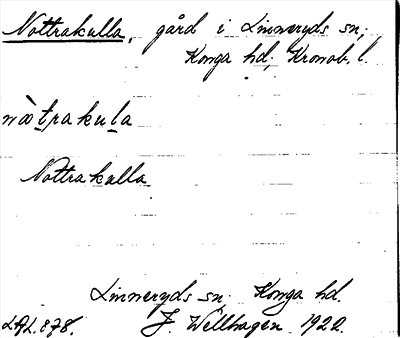 Nottrakulla, gård i Linneryds sn,
Konga hd, Kronob. l.
nòtrakula
Nottrakulla
Linneryds sn, Konga hd.
LAL. 878. J. Wellhagen 1922.